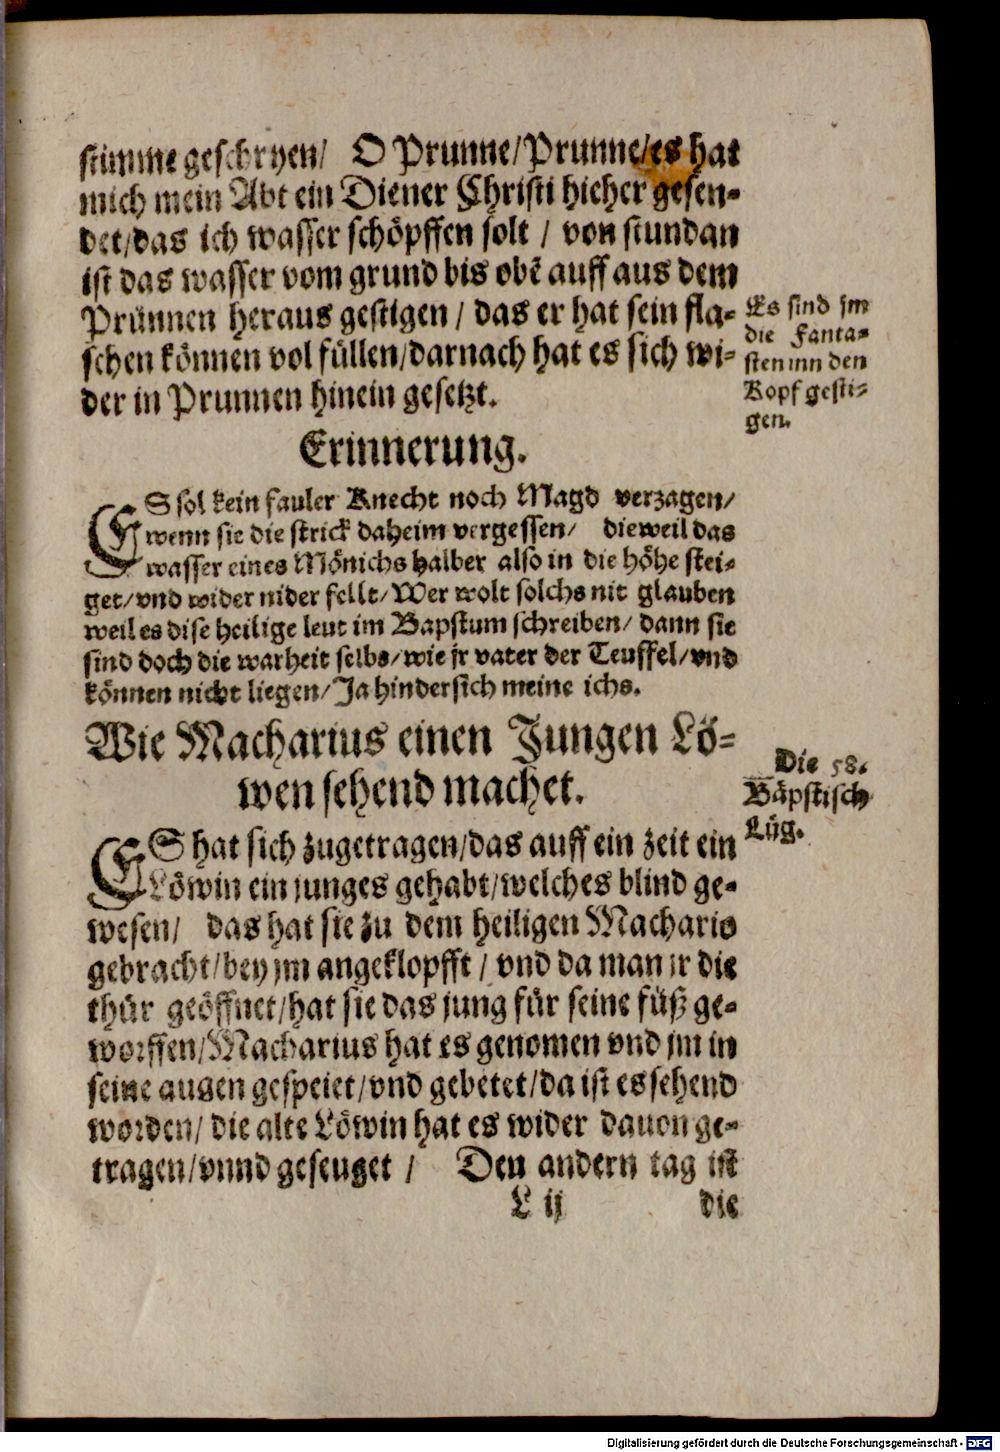 stimme geschryen/ O Prunne/Prunne/es hat
mich mein Abt ein Diener Christi hieher gesen-
det/das ich wasser schöpffen solt / von stundan
ist das wasser vom grund bis obē auff aus dem
Prünnen heraus gestigen / das er hat sein fla-
schen können vol füllen/darnach hat es sich wi-
der in Prunnen hinein gesetzt.
Es sind jm
die Fanta-
sten inn den
Kopf gesti-
gen.
Erinnerung.
ES sol kein fauler Knecht noch Magd verzagen/
wenn sie die strick daheim vergessen/ dieweil das
wasser eines Mönichs halber also in die höhe stei-
get/vnd wider nider fellt/Wer wolt solchs nit glauben
weil es dise heilige leut im Bapstum schreiben/ dann sie
sind doch die warheit selbs/wie jr vater der Teuffel/vnd
können nicht liegen/Ja hindersich meine ichs.
Wie Macharius einen Jungen Lö-
wen sehend machet.
Die 58.
Bäpstisch
Lüg.
ES hat sich zugetragen/das auff ein zeit ein
Löwin ein junges gehabt/welches blind ge-
wesen/ das hat sie zu dem heiligen Machario
gebracht/bey jm angeklopfft / vnd da man jr die
thür geöffnet/hat sie das jung für seine füß ge-
worffen/Macharius hat es genomen vnd jm in
seine augen gespeiet/vnd gebetet/da ist es sehend
worden/ die alte Löwin hat es wider dauon ge-
tragen/vnnd geseuget / Den andern tag ist
L ij die
Digitalisierung gefördert durch die Deutsche Forschungsgemeinschaft - DFG